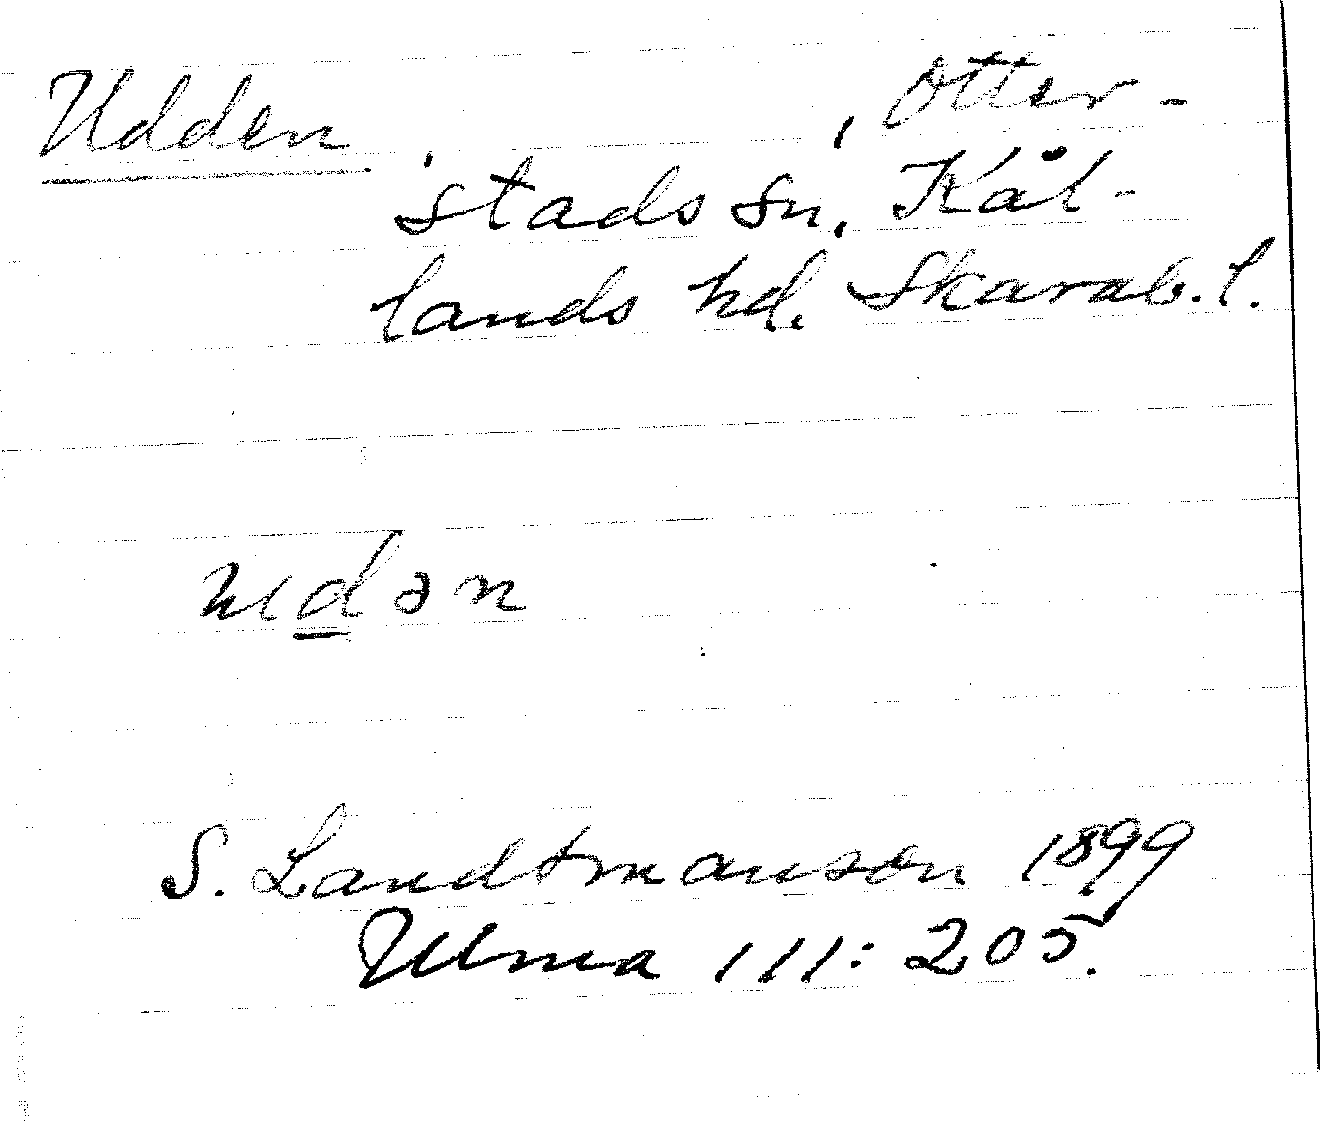 Udden , Otter-
stads sn, Kål-
lands hd. Skarab. l.
udən
S. Landtmanson 1899
Ulma 111:205.